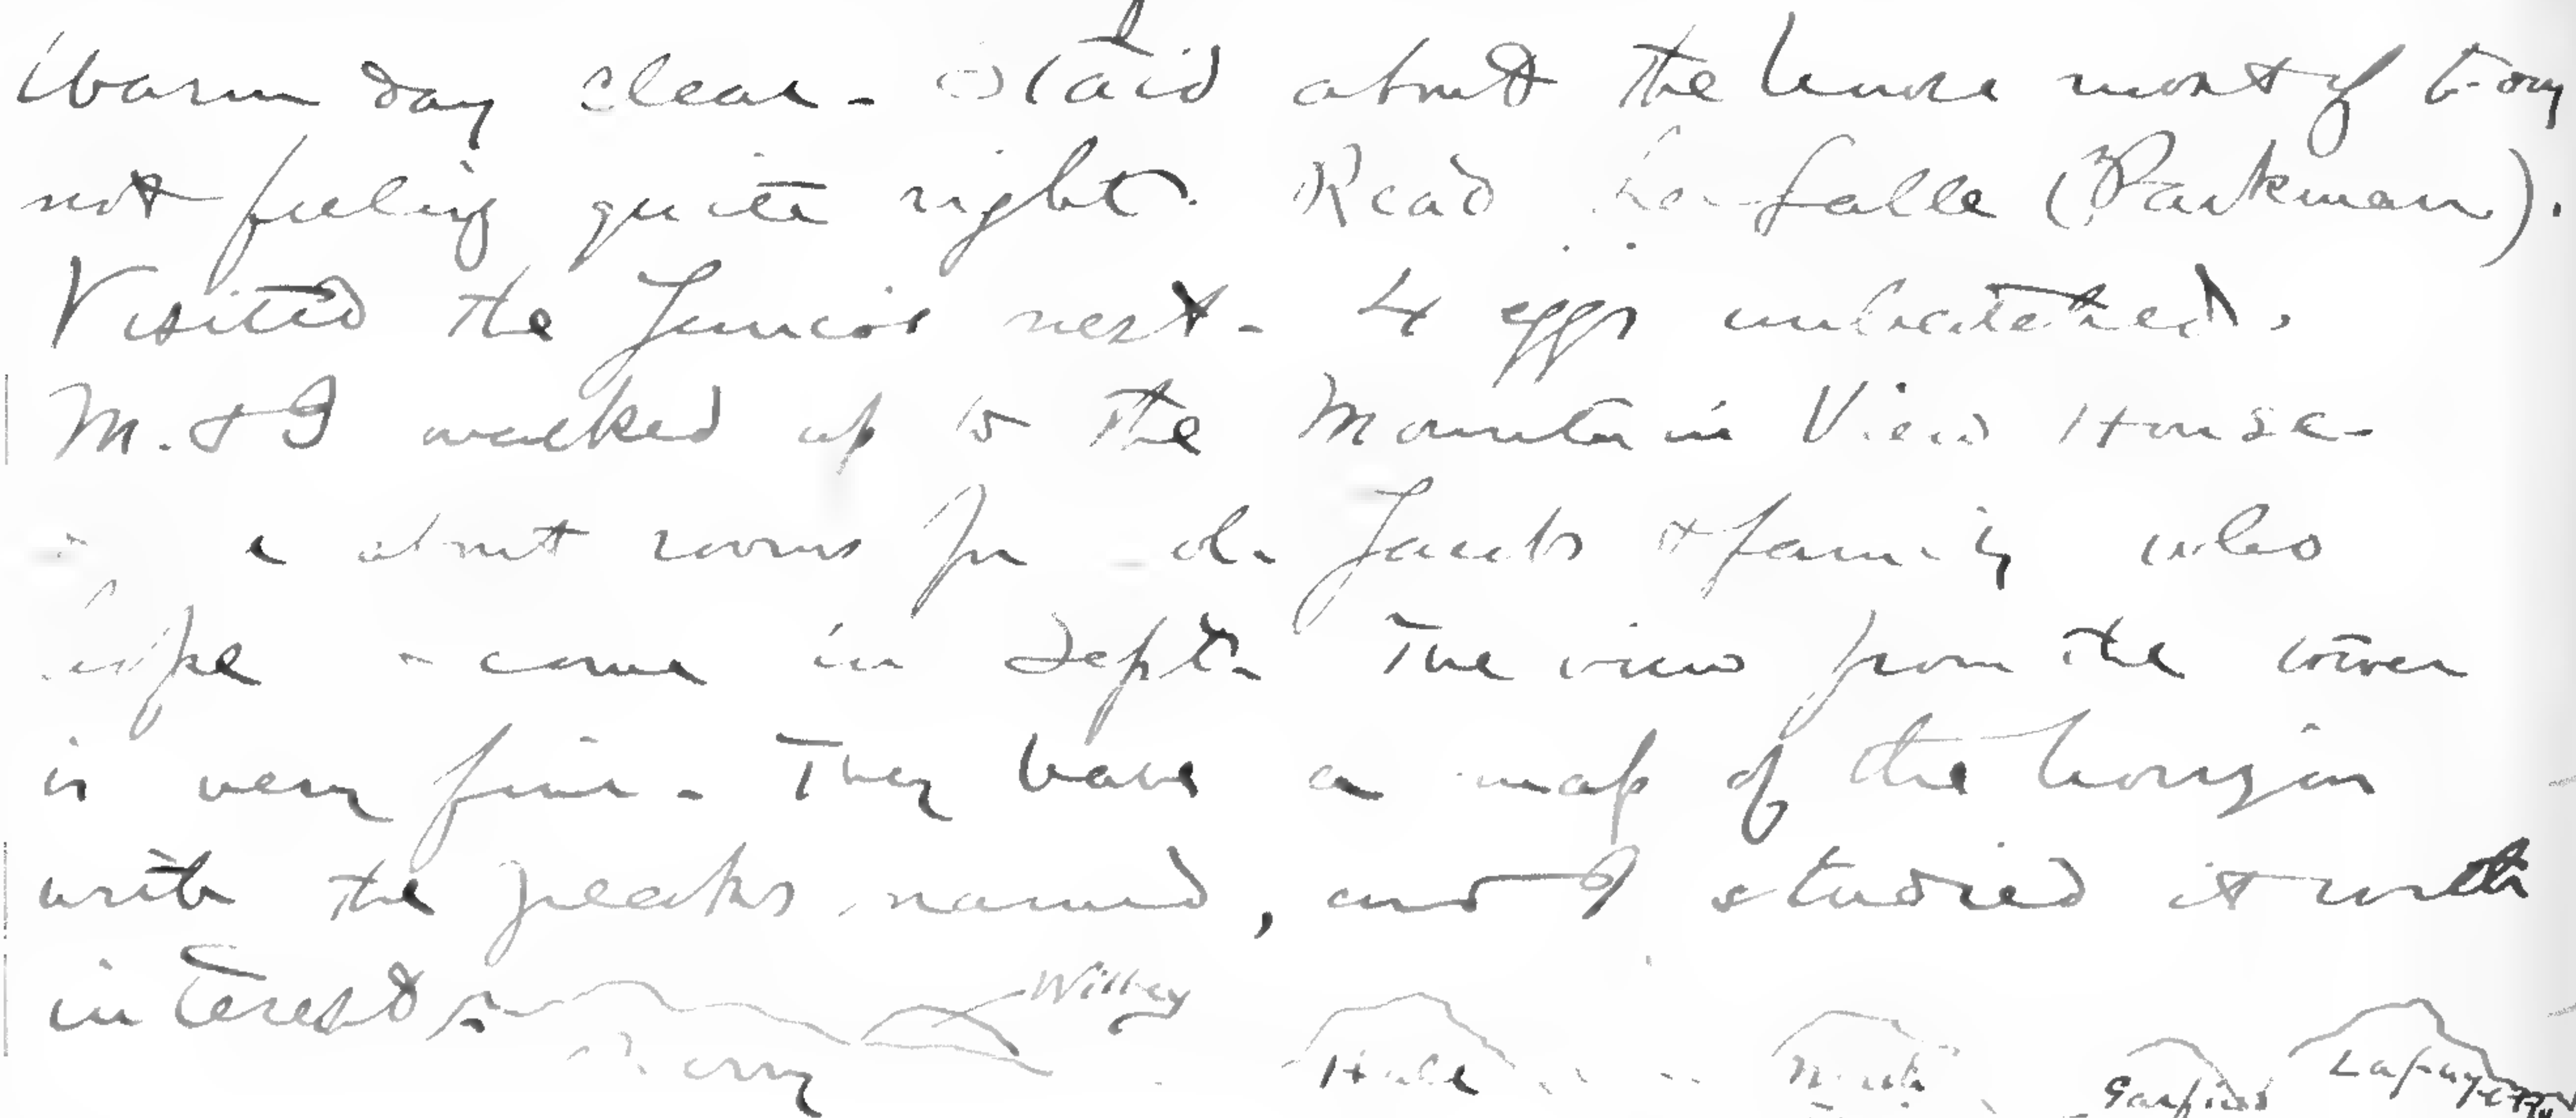 Warm day clear - Staid about the house most of to-day
not feeling quite right. Read La Salle (Parkman).
Visited the Juncos nest - 4 eggs unhatched.
M. & I walked up to the Mountain View House -
about rooms for Jacobs & family who
hope come in Sept. The view from the tower
is very fine - They have a map of the horizon
with the peaks named, and I studied it with
interest.
Willey
Cherry Hale North Garfield Lafayette